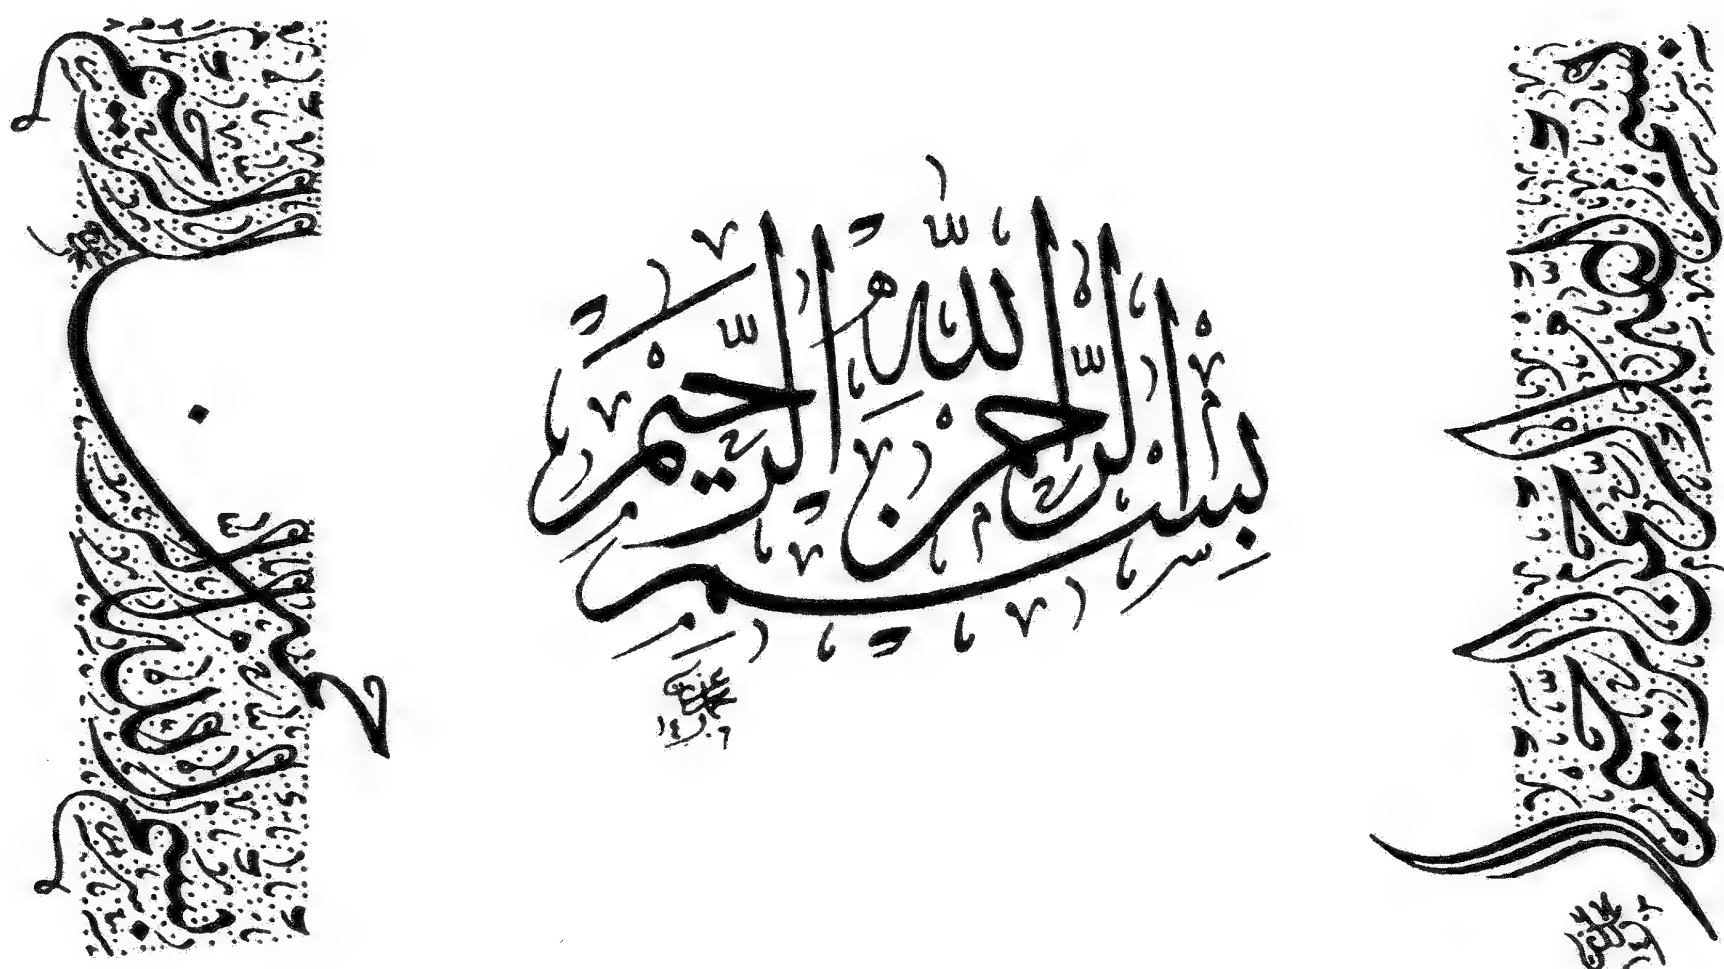 بِسْمِ اللَّهِ الرَّحْمَنِ الرَّحِيمِ
بسم الله الرحمن الرحيم
بسم الله الرحمن الرحيم